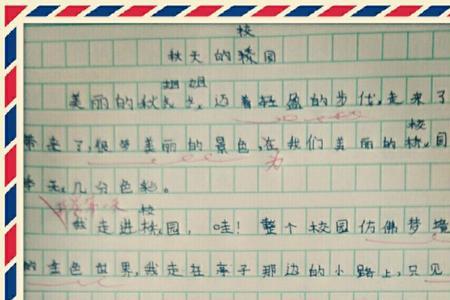 校
秋天的校园
姐姐
美丽的秋 迈着轻盈的步伐,走来了
带来了,很多美丽的景色,在我们美丽的校园
校
为
天,几分色彩。
校
我走进校园,哇!整个校园仿佛梦境
的金色世界,我走在亭子那边的小路上,只见